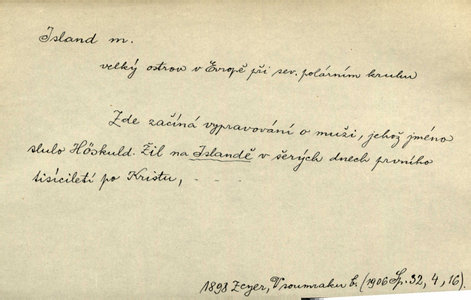 Island m.
velký ostrov v Evropě při sev. polárním kruhu
Zde začíná vypravování o muži, jehož jméno
slulo Höskuld. Žil na Islandě v šerých dnech prvního
tisíciletí po Kristu, - - -
1898 Zeyer, V soumraku b. (1906 Sp. 32, 4, 16).